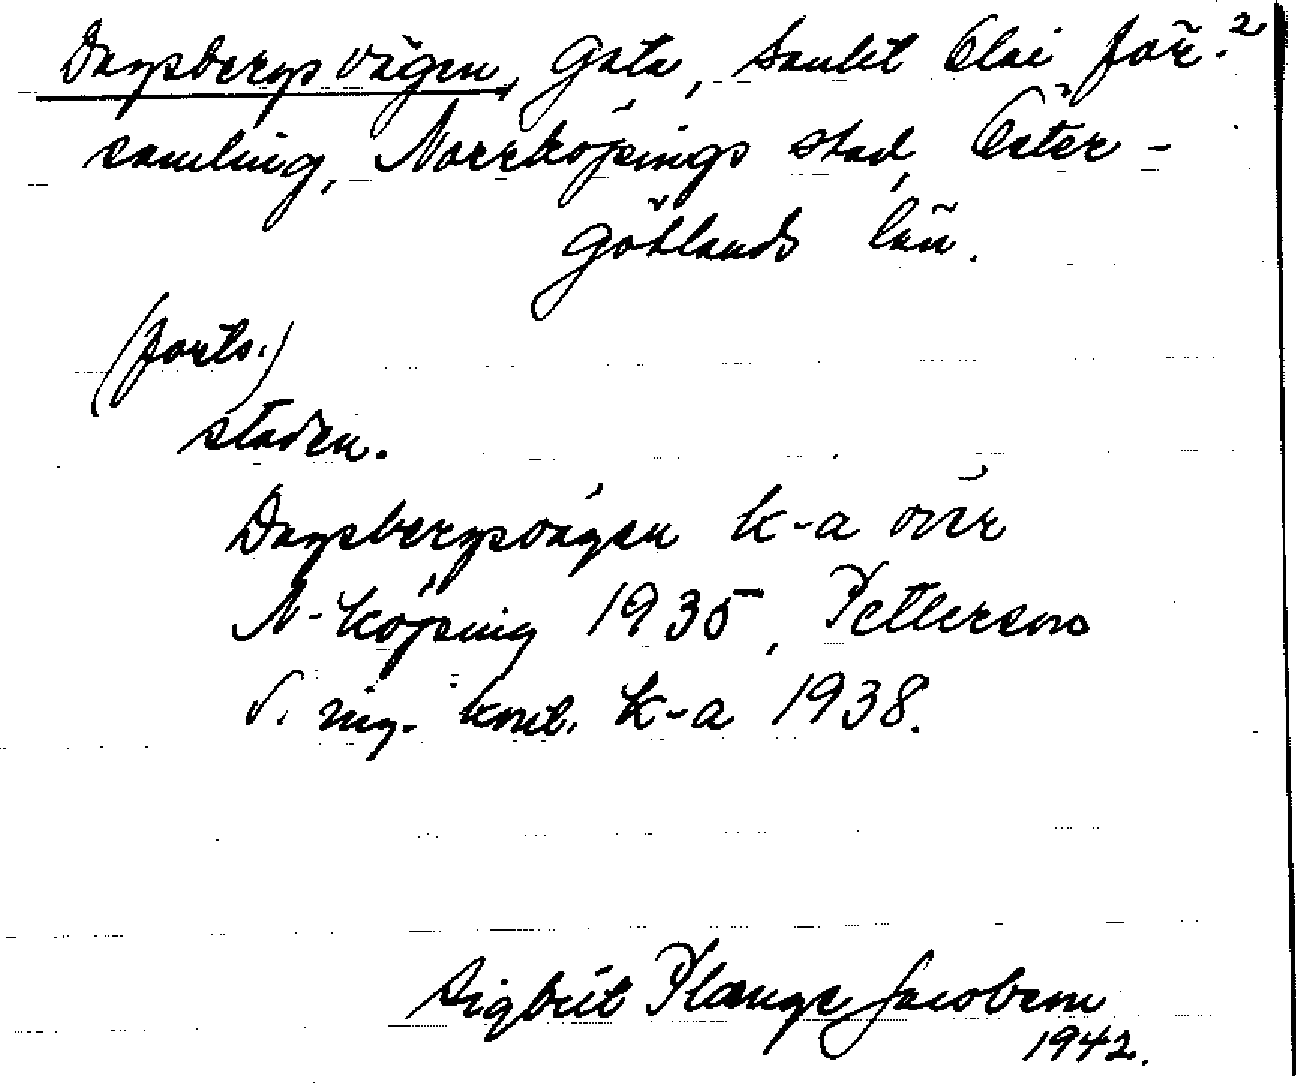 Dagsbergsvägen, Gata, Sankt Olai för-²
samling, Norrköpings stad, Öster-
götlands län.
(forts.)
staden.
Dagsbergsvägen k-a över
N-köping 1935, Petterson
V. ing. komb. k-a 1938.
Sigbrit Plænge Jacobson
1942.